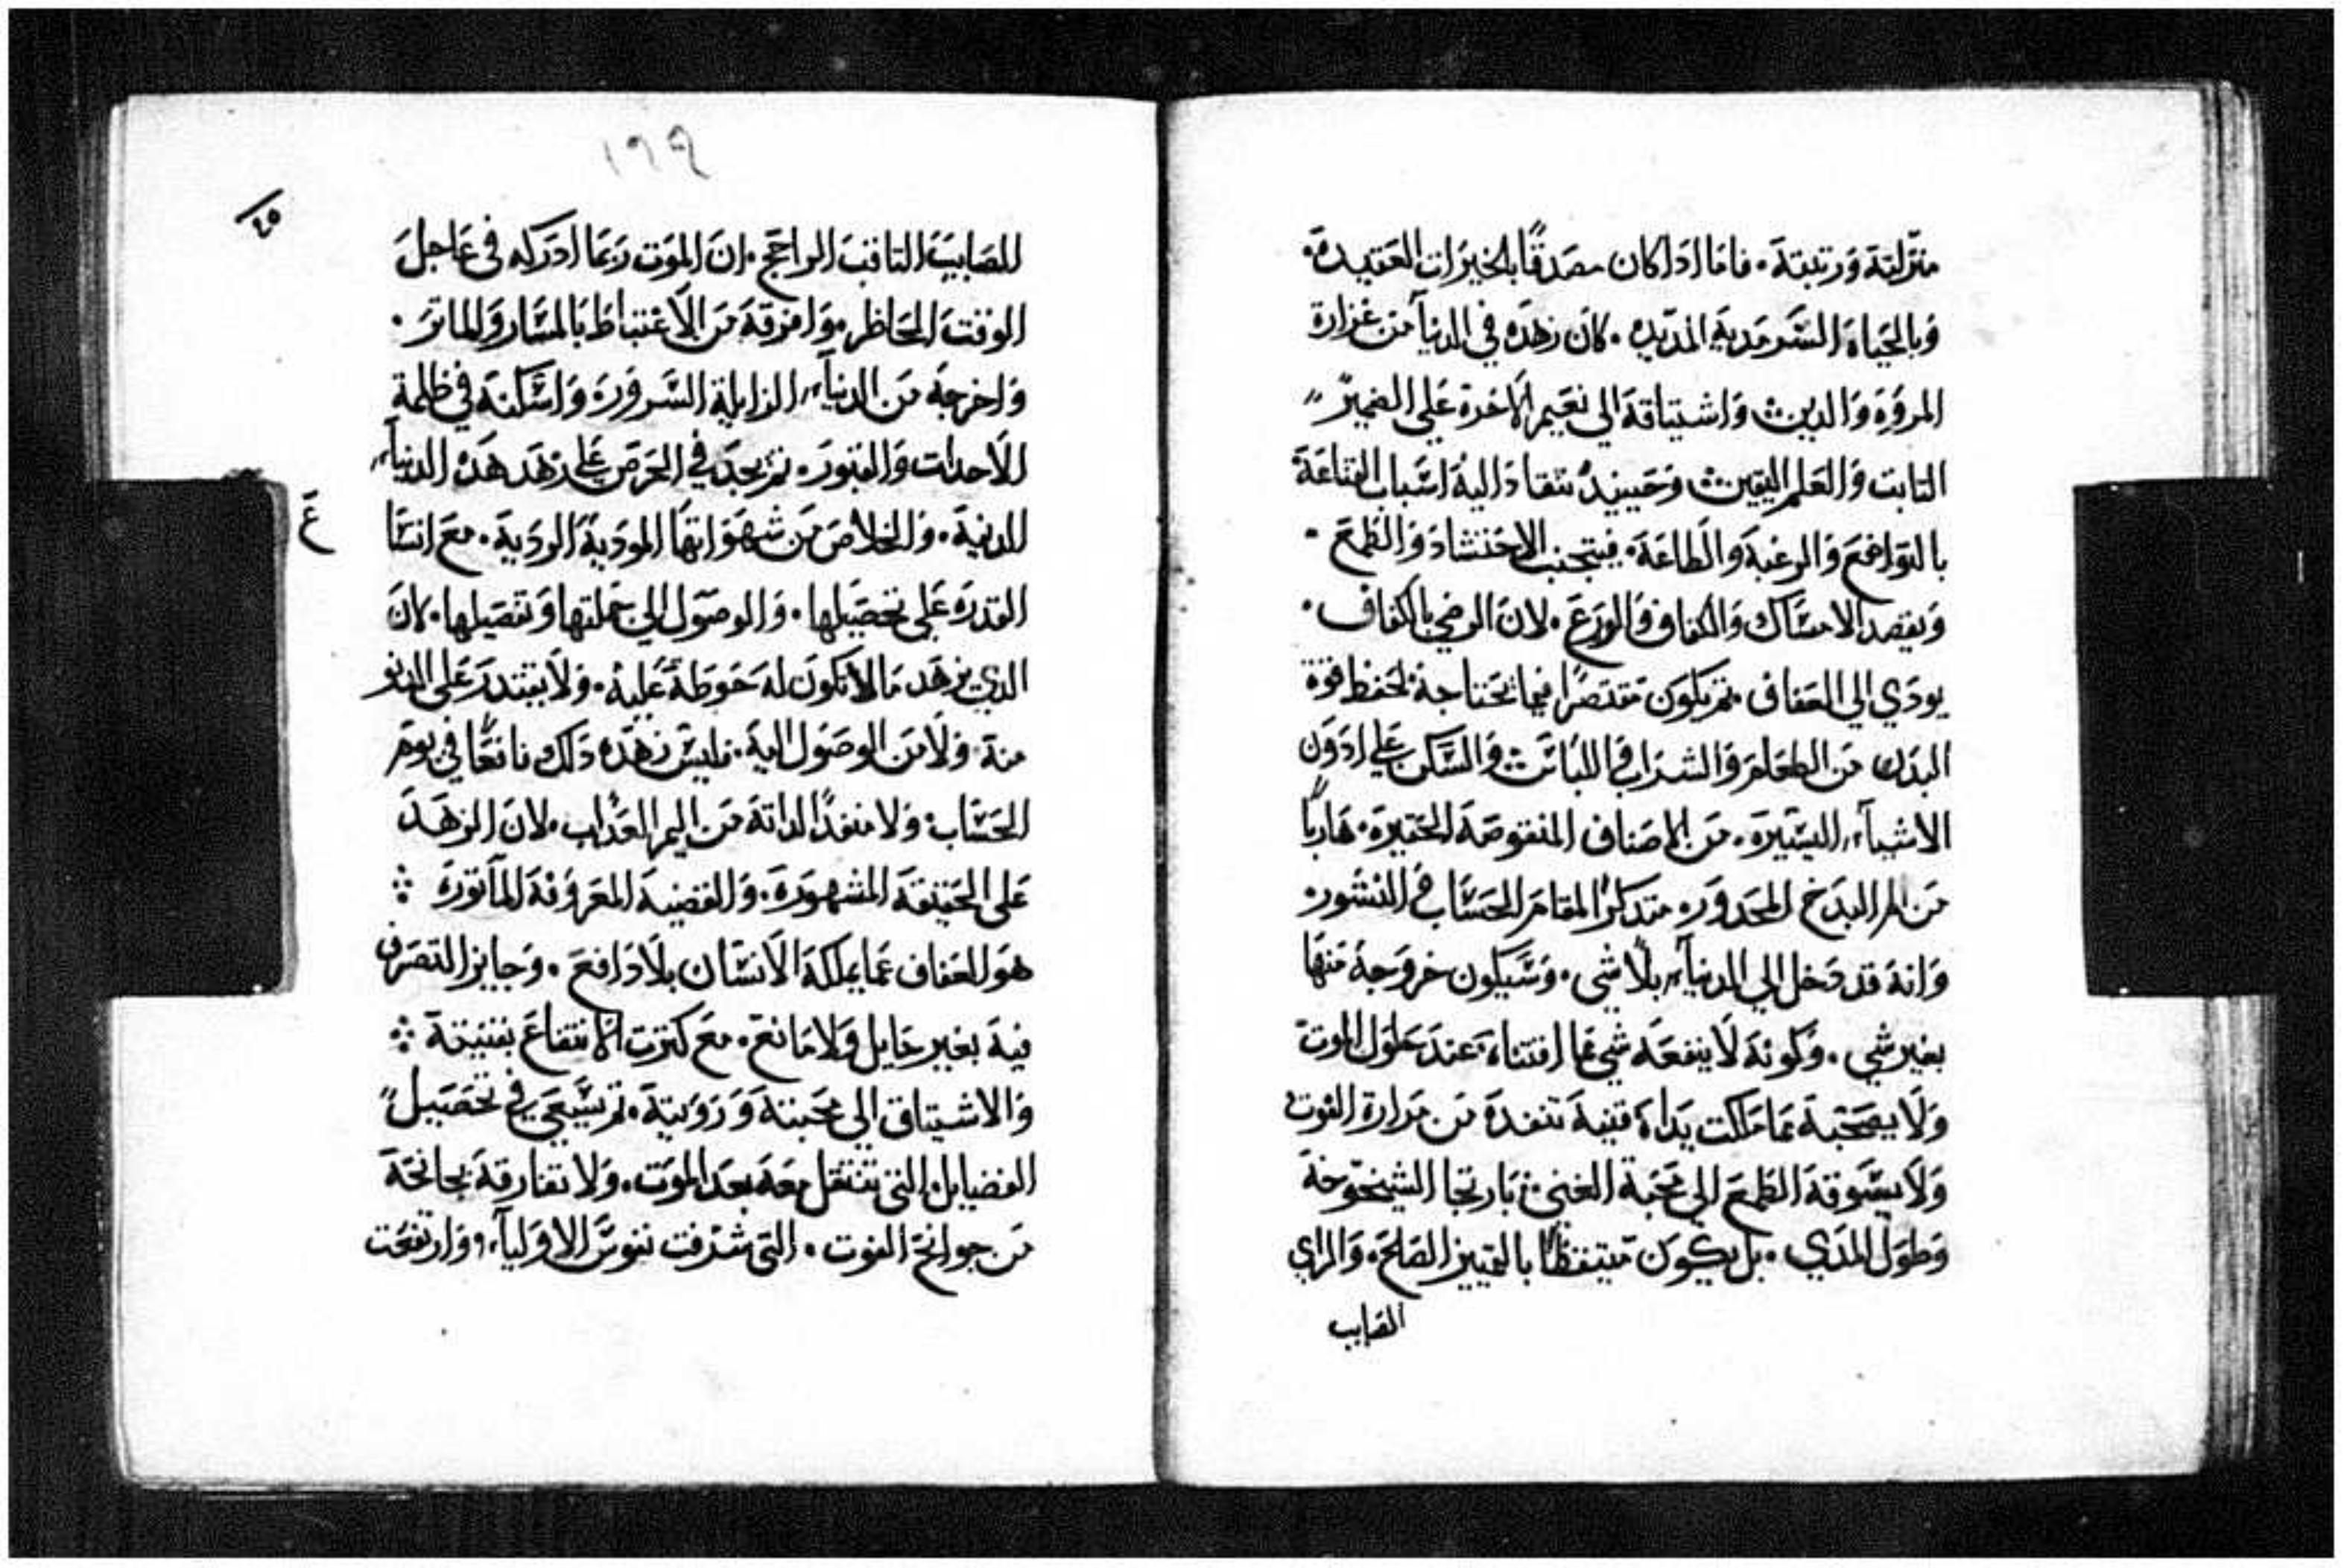 منزلته ورتبته. فاما ادا كان مصدقًا بالخيرات العتيده.
وبالحياه السرمديه المديده. كان زهده في الدنيآ من غزارة
المروه والدين واشتياقه الي نعيم الاخرة علي الضمير
التابت والعلم اليقين وحينيد تنقاد اليه اسباب القناعة
بالتواضع والرغبه والطاعه. فيتجنب الاحتشاد والطمع.
ويقصد الامساك والكفاف والورع. لان الرضي بالكفاف.
يودي الي العفاف. تم يكون مقتصرًا فيما يحتاجه لحفظ قوة
البدن من الطعام والشراب واللباس والسكن علي ادون
الاشيآء اليسيره. من الاصناف المنقوصه الحقيره. هاربًا
من البدخ المحدور. متدكرًا لمقام الحساب والنشور.
وانه قد دخل الي الدنيآء بلا شي. وسيكون خروجه منها
بغير شي. وكونه لا ينفعه شي مما اقتناه، عند حلول الموت
ولا يصحبه مما ملكت يداه قنيه تنقده من مرارة الفوت
ولا يسوقه الطمع الي محبة الغني بارتجا الشيخوخة
وطول المدي. بل يكون متيقظًا بالتمييز الصالح. والراي
الصايب
١٢٩
٢٥
الصايب التاقب الراجح. ان الموت ربما ادركه في عاجل
الوقت الحاظر. وافرقه من الاغتباط بالمسار والماتر.
واخرجه من الدنيآء الزايلة السرور. واسكنه في ظلمة
الاحدات والقبور. تم يجد في الحرص علي زهد هده الدنيآء
الدنيه. والخلاص من شهواتها الموديه الرديه. مع انسا
غ
القدره علي تحصيلها. والوصول الي جملتها وتفصيلها. لان
الدي يزهد ما لا تكون له حوطة عليه. ولا يقتدر علي الدنو
منه ولا من الوصول اليه. فليس زهده دلك نافعًا في يوم
الحساب ولا منقدًا لداته من اليم العداب. لان الزهد
علي الحقيقه المشهوره. والقضيه المعروفه الماتورة
هو العفاف عما يملكه الانسان بلا دافع. وجايز التصرف
فيه بغير حايل ولا مانع. مع كترت الانتفاع بقنيته
والاشتياق الي محبته وروىته. تم يسعي في تحصيل
الفضايل التي تنتقل معه بعد الموت. ولا تفارقه بجانحة
من جوانح الفوت. التي شرفت نفوس الاوليآء، وارتفعت